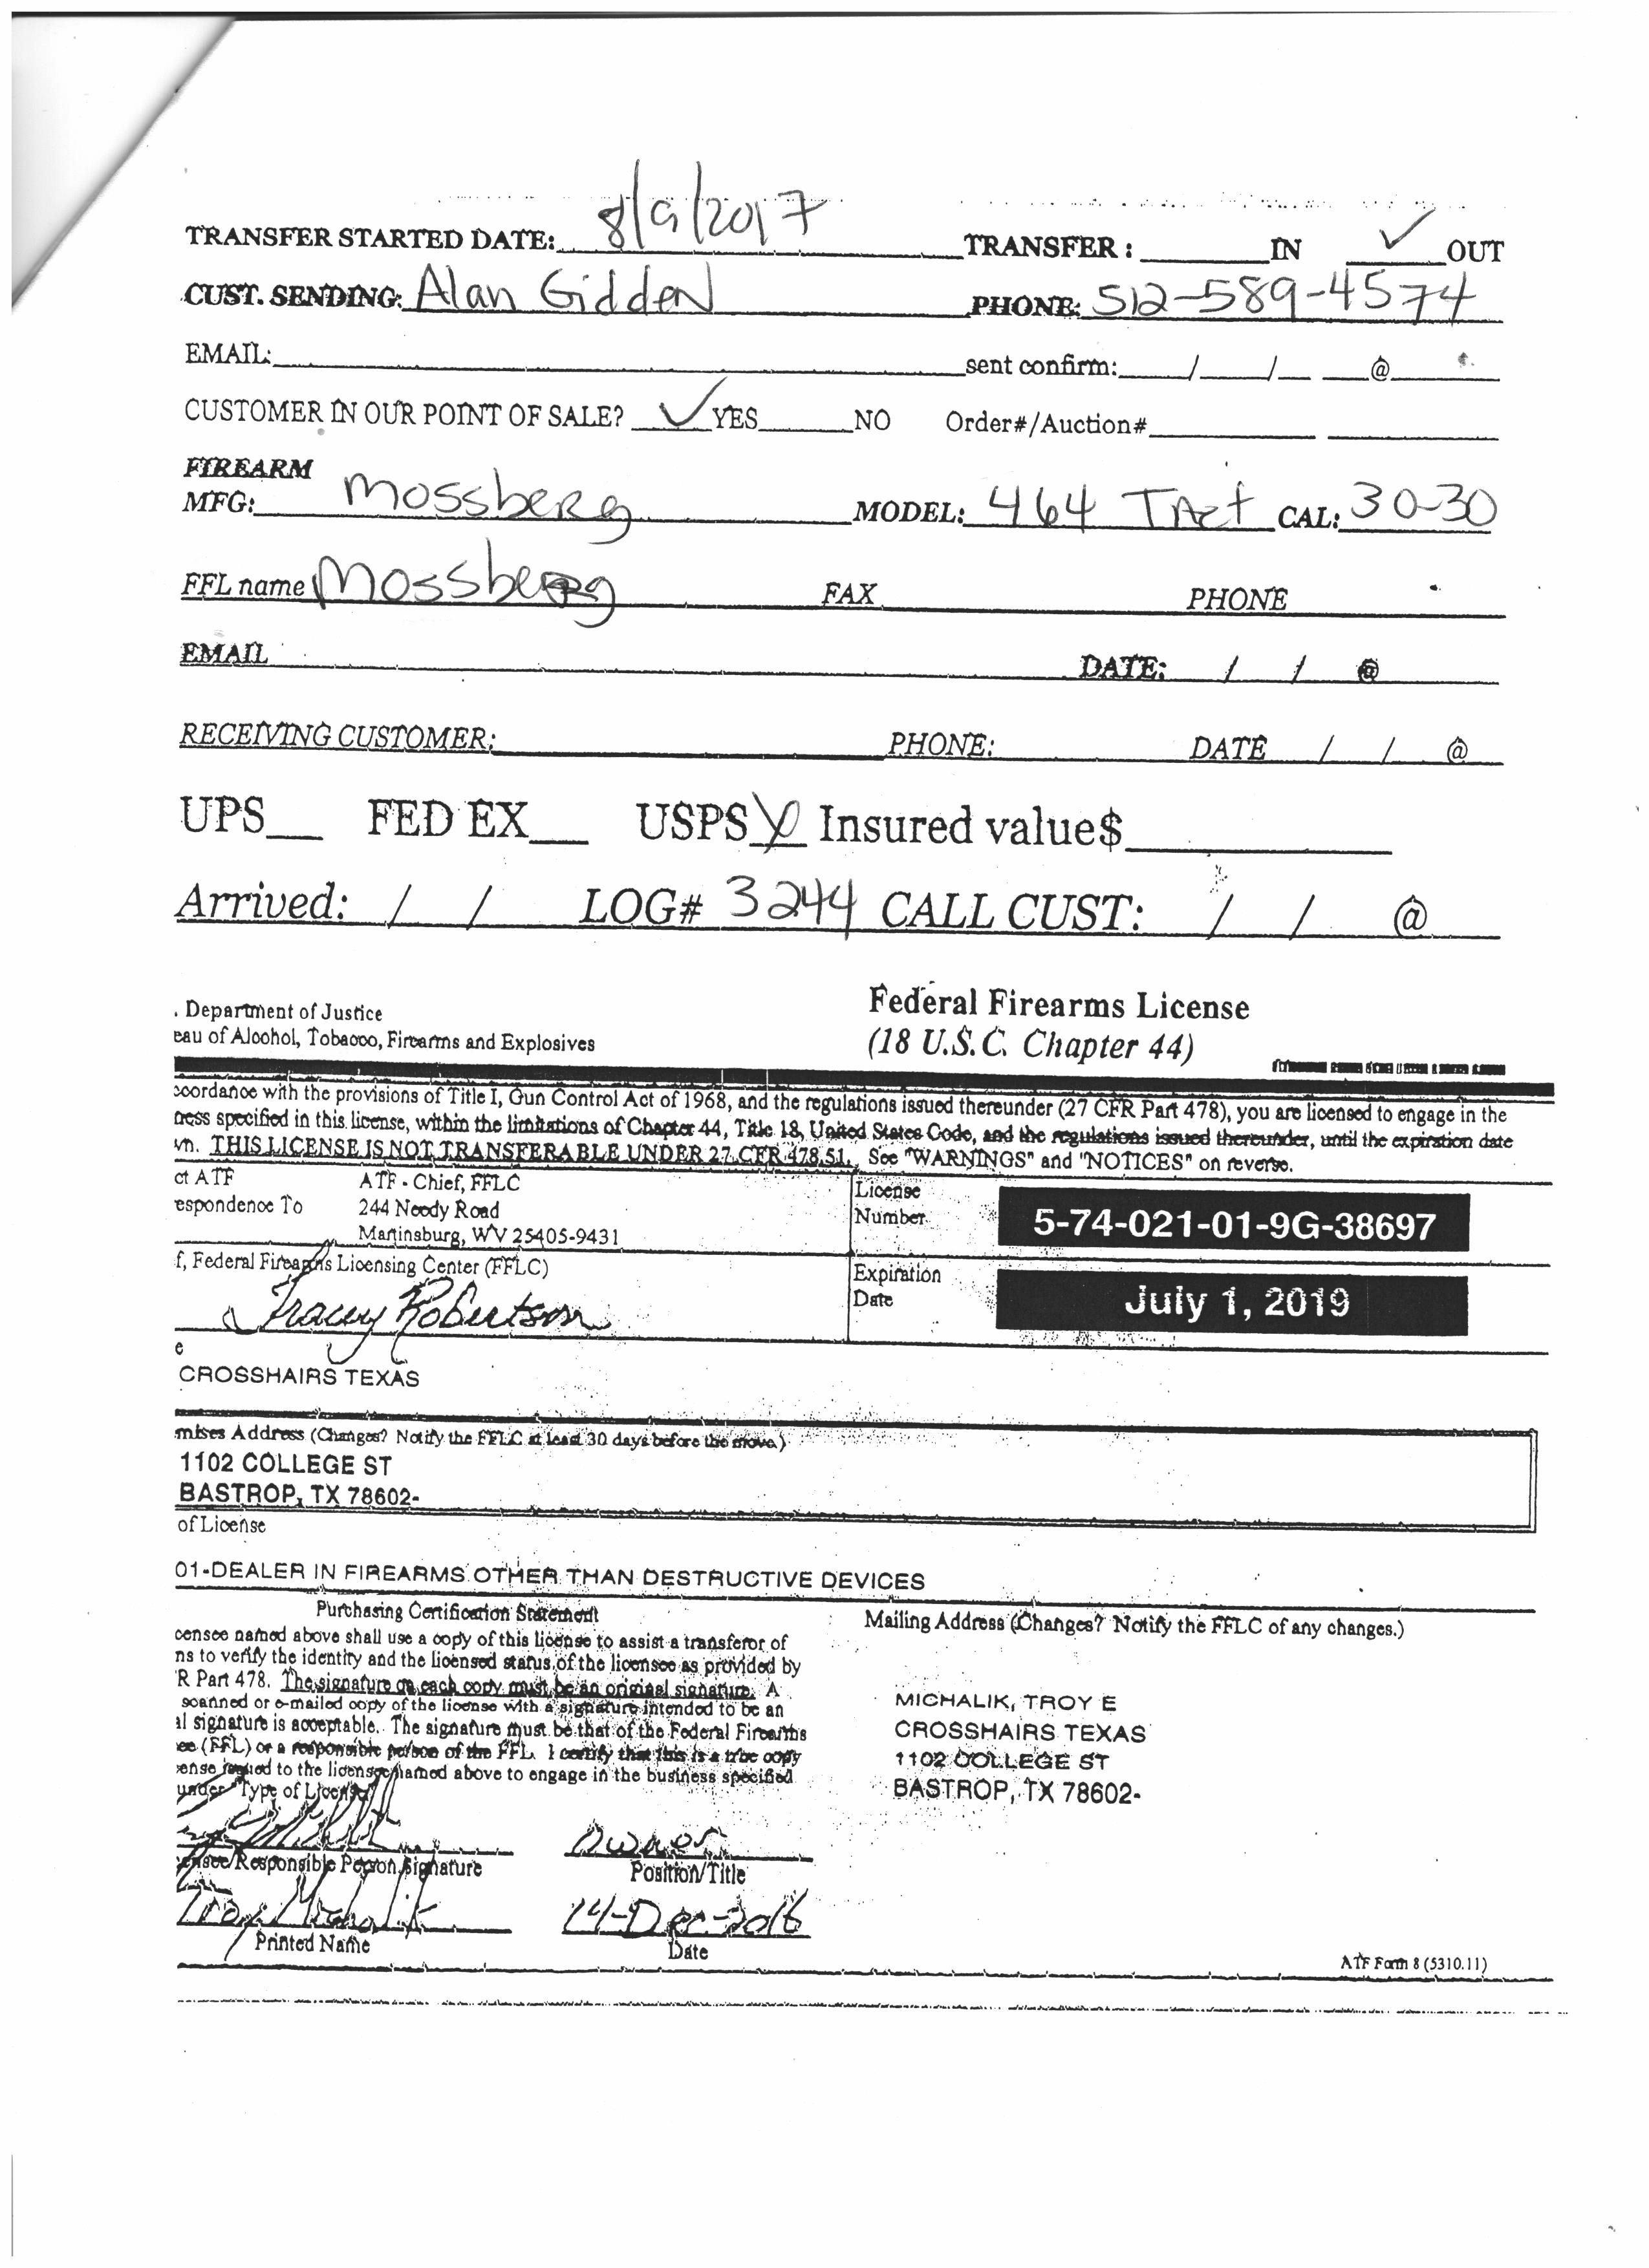 TRANSFER STARTED DATE: 8/9/2017 TRANSFER : ______IN ✓ OUT
CUST. SENDING: Alan Gidden PHONE: 512-589-4574
EMAIL:______ sent confirm:____/____/___ ____@______
CUSTOMER IN OUR POINT OF SALE? ✓ YES______NO Order#/Auction#______ ______
FIREARM
MFG: Mossberg MODEL: 464 TAct CAL: 30-30
FFL name Mossberg FAX PHONE
EMAIL DATE: / / @
RECEIVING CUSTOMER: PHONE: DATE / / @
UPS__ FED EX__ USPS Insured value$______
Arrived: / / LOG# 3244 CALL CUST: / / @
. Department of Justice
eau of Alcohol, Tobacco, Firearms and Explosives
Federal Firearms License
(18 U.S.C. Chapter 44)
ccordance with the provisions of Title I, Gun Control Act of 1968, and the regulations issued thereunder (27 CFR Part 478), you are licensed to engage in the
ness specified in this license, within the limitations of Chapter 44, Title 18, United States Code, and the regulations issued thereunder, until the expiration date
wn. THIS LICENSE IS NOT TRANSFERABLE UNDER 27 CFR 478.51. See "WARNINGS" and "NOTICES" on reverse.
ct ATF ATF - Chief, FFLC
espondence To 244 Needy Road
Martinsburg, WV 25405-9431
License
Number 5-74-021-01-9G-38697
f, Federal Firearms Licensing Center (FFLC)
Tracey Robertson
Expiration
Date July 1, 2019
e
CROSSHAIRS TEXAS
mises Address (Changes? Notify the FFLC at least 30 days before the move.)
1102 COLLEGE ST
BASTROP, TX 78602-
of License
01-DEALER IN FIREARMS OTHER THAN DESTRUCTIVE DEVICES
Purchasing Certification Statement
censee named above shall use a copy of this license to assist a transferor of
ns to verify the identity and the licensed status of the licensee as provided by
R Part 478. The signature on each copy must be an original signature. A
scanned or e-mailed copy of the license with a signature intended to be an
al signature is acceptable. The signature must be that of the Federal Firearms
ee (FFL) or a responsible person of the FFL. I certify that this is a true copy
ense issued to the licensee named above to engage in the business specified
under "Type of License"
Mailing Address (Changes? Notify the FFLC of any changes.)
MICHALIK, TROY E
CROSSHAIRS TEXAS
1102 COLLEGE ST
BASTROP, TX 78602-
Owner
ensee/Responsible Person Signature Position/Title
Troy Michalik 14-Dec-2016
Printed Name Date
ATF Form 8 (5310.11)